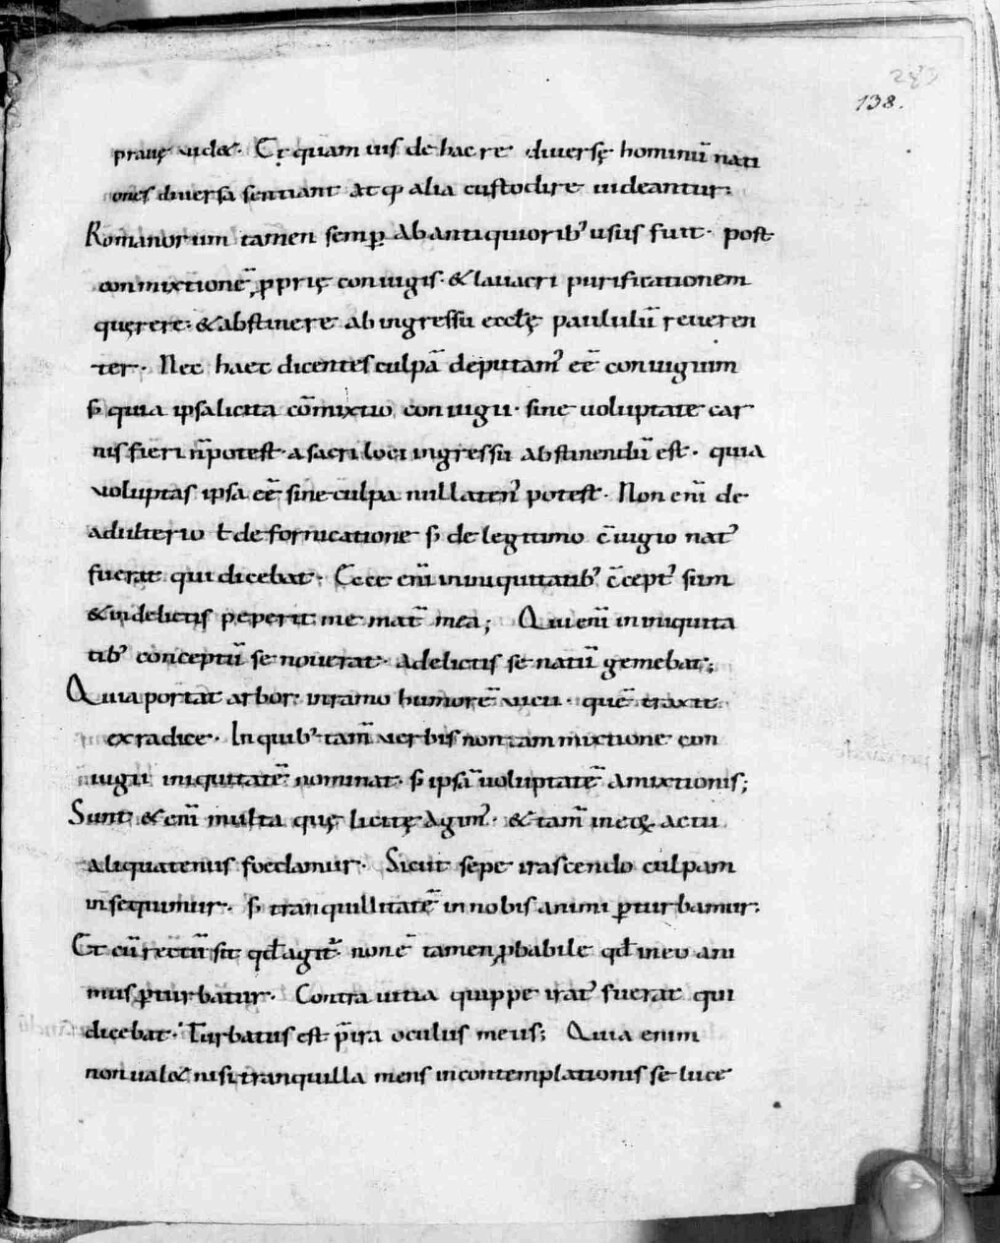 138.
prauę uidet. Et quam uis de hac re diuersę hominū nati
ones diuersa sentiant atq; alia custodire uideantur;
Romanorum tamen semꝑ ab antiquiorib' usus fuit. post
conmixtionē ꝓprię coniugis. & lauacri purificationem
quęrere. & abstinere ab ingressu eccłę paululū reueren
ter. Nec haec dicentes culpā deputam' eē coniugium
s; quia ipsa licita cōmixtio coniugii. sine uoluptate car
nis fieri n̄ potest. a sacri loci ingressu abstinendū est. quia
uoluptas ipsa eē sine culpa nullaten' potest. Non enī de
adulterio ł de fornicatione s; de legitimo c̄iugio nat'
fuerat qui dicebat. Ecce enī in iniquitatib' c̄cept' sum
& in delictis peperit me mat̄ mea; Qui enī in iniquita
tib' conceptū se nouerat. a delictis se natū gemebat;
Quia portat arbor in ramo humorē uicii. quē traxit
ex radice. In quib' tam̄ uerbis non tam mixtione con
iugii iniquitatē nominat. s; ipsā uoluptatē amixtionis;
Sunt & enī multa quę licitę agim'. & tam̄ in eoꝝ actu
aliquatenus foedamur. Sicut sepe irascendo culpam
insequimur. s; tranquillitatē in nobis animi ꝑturbamur.
Et cū rectū sit qđ agit'. non ē tamen ꝓbabile qđ in eo ani
mus ꝑturbatur. Contra uitia quippe irat' fuerat qui
dicebat. Turbatus est p̄ ira oculus meus; Quia enim
non ualet nisi tranquilla mens in contemplationis se luce